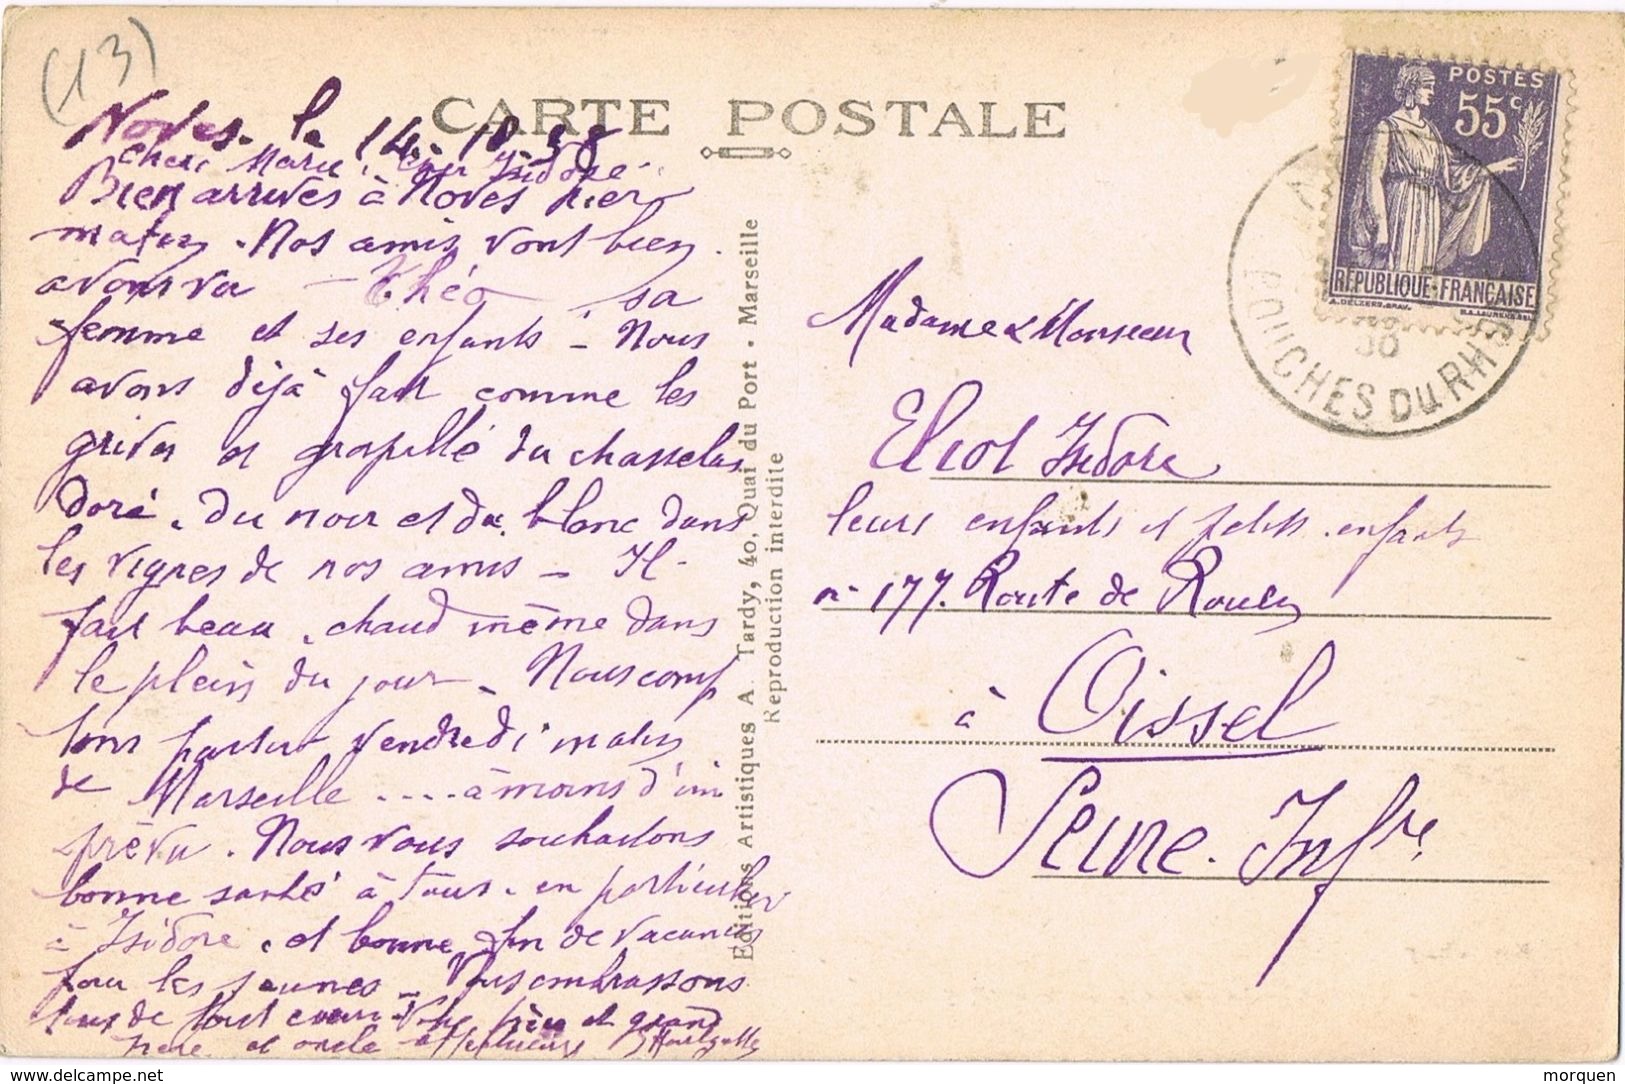 (13)
CARTE POSTALE
Noves. le 14. 38
chere Marie. cher Isidore.
Bien arrivés à Noves hier
matin. Nos amis vont bien.
avons vu Théo sa
femme et ses enfants - Nous
avons déjà fait comme les
grives et grapillé du chasselas
doré. du noir et du blanc dans
les vignes de nos amis - Il
fait beau, chaud même dans
le plein du jour - Nous comp
tons partir vendredi matin
de Marseille .... à moins d'im
prévu. Nous vous souhaitons
bonne santé à tous. en particulier
à Isidore, et bonne fin de vacances
pour les jeunes - Vous embrassons
tous de tout cœur. Votre frère et grand
père et oncle affectueux
Editions Artistiques A. Tardy, 40, Quai du Port - Marseille
Reproduction interdite
POSTES
55c
RÉPUBLIQUE-FRANÇAISE
BOUCHES DU RH
Madame & Monsieur
Eliot Isidore
leurs enfants et petits-enfants
n° 177. Route de Rouen
à Oissel
Seine-Infre
delcampe.net
morquen